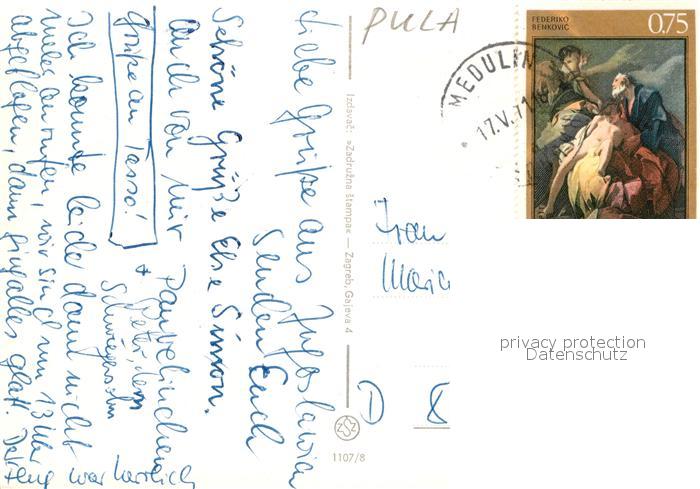 Liebe Grüße aus Jugoslawien
senden Euch
Schöne Grüße Else Simon.
Auch von mir
Grüße an Tasso!
+ Peter, dem
Schwiegersohn
Ich konnte leider damit nicht
mehr anrufen, wir sind um 13 Uhr
abgeflogen, dann ging alles glatt.
war herrlich
PULA
Izdavač: »Zadružna štampa« — Zagreb, Gajeva 4
1107/8
FEDERIKO
BENKOVIĆ
0,75
MEDULIN
17.V.71
Frau
Maria
D 8
privacy protection
Datenschutz